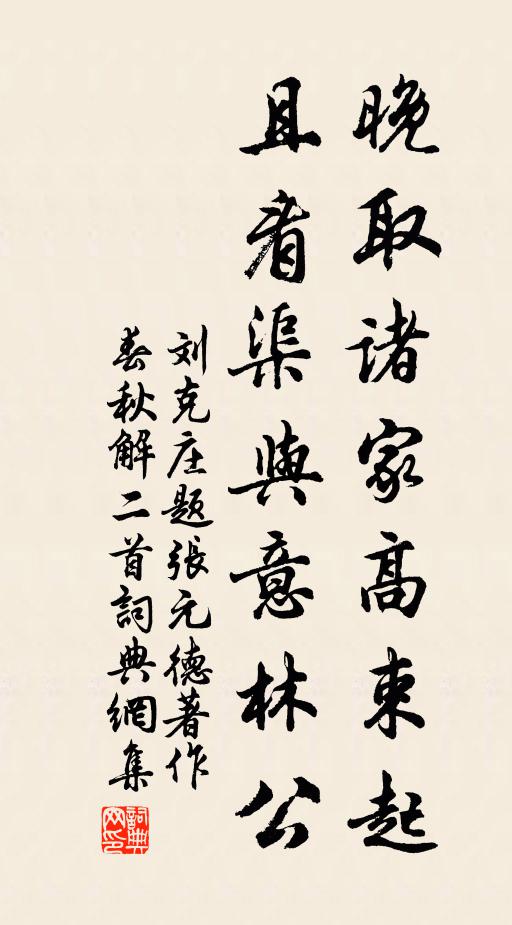 晚取諸家高束起
且看渠與意林公
刘克庄题張元德著作
春秋解二首詞典網集
詞典
网印